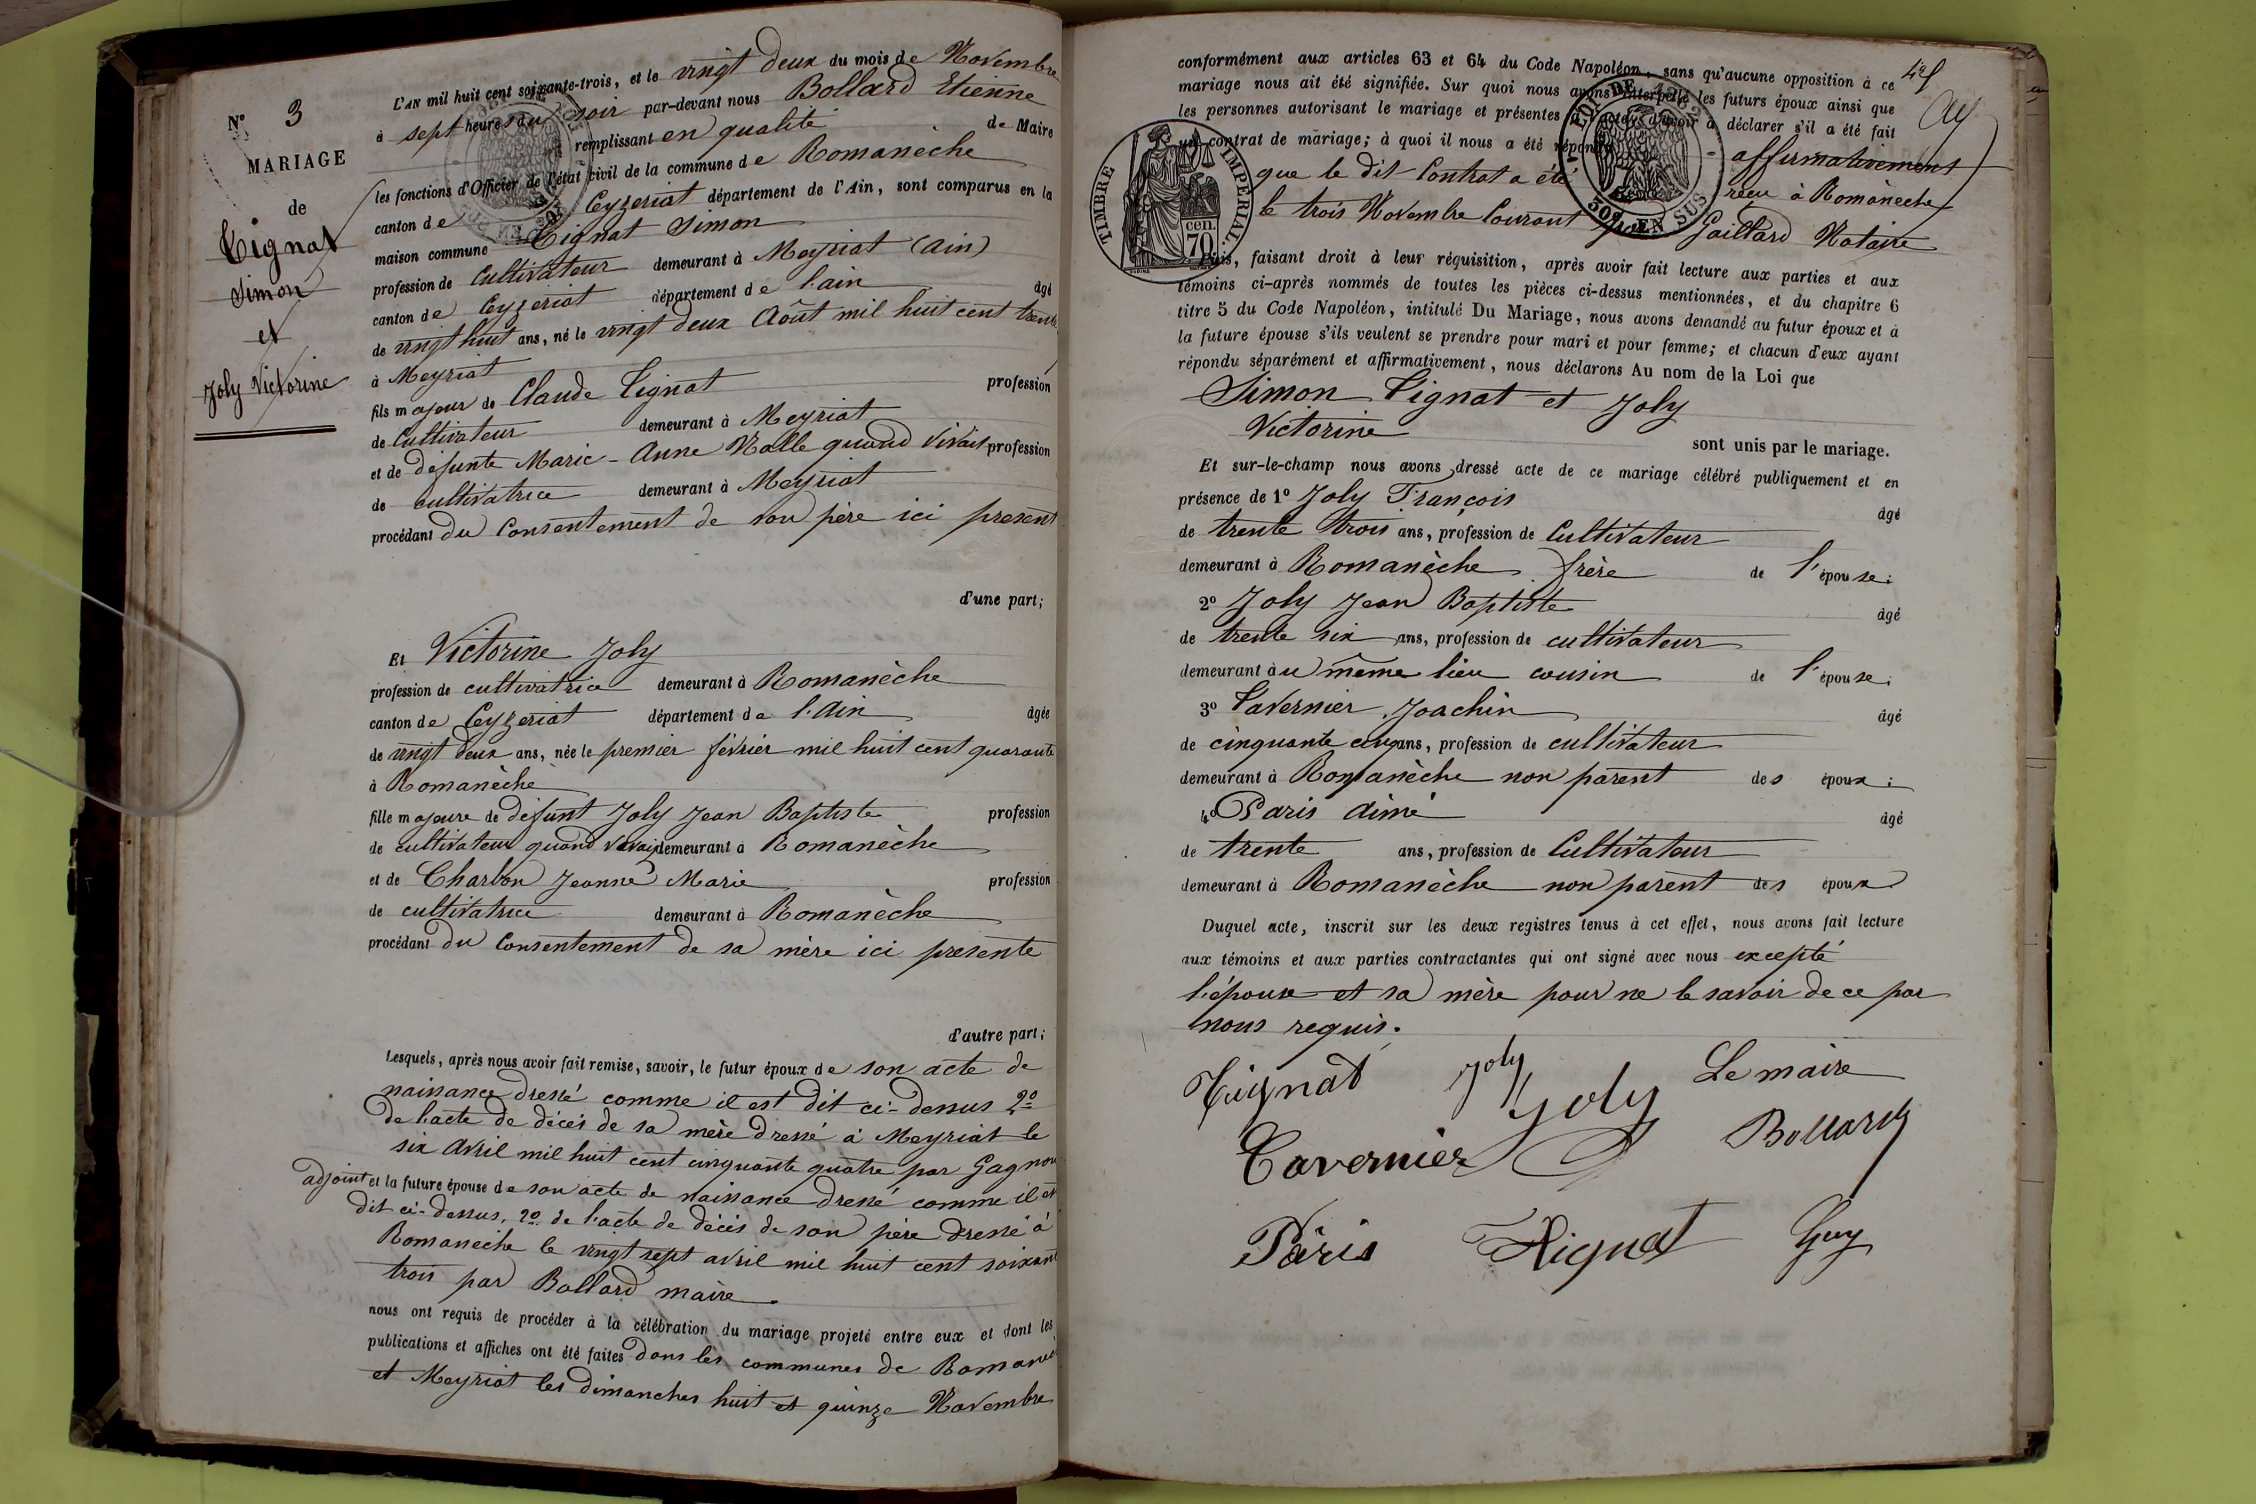 N° 3
MARIAGE
de
Tignat
Simon
et
Joly Victorine
L'AN mil huit cent soixante-trois, et le vingt deux du mois de Novembre
à sept heures du soir par-devant nous Bollard Etienne
remplissant en qualité de Maire
les fonctions d'Officier de l'état civil de la commune de Romanèche
canton de Ceyzeriat département de l'Ain, sont comparus en la
maison commune Tignat Simon
profession de Cultivateur demeurant à Meyriat (Ain)
canton de Ceyzeriat département de l'ain âgé
de vingt huit ans, né le vingt deux Août mil huit cent trente
à Meyriat
fils majeur de Claude Tignat profession
de Cultivateur demeurant à Meyriat
et de défunte Marie-Anne Nalle quand vivait profession
de cultivatrice demeurant à Meyriat
procédant du Consentement de son père ici présent
d'une part;
Et Victorine Joly
profession de cultivatrice demeurant à Romanèche
canton de Ceyzeriat département de l'Ain âgée
de vingt deux ans, née le premier février mil huit cent quarante
à Romanèche
fille majeure de défunt Joly Jean Baptiste profession
de cultivateur quand vivait demeurant à Romanèche
et de Charbon Jeanne Marie profession
de cultivatrice demeurant à Romanèche
procédant du Consentement de sa mère ici présente
d'autre part;
Lesquels, après nous avoir fait remise, savoir, le futur époux de son acte de
naissance dressé comme il est dit ci-dessus 2°
de l'acte de décès de sa mère dressé à Meyriat le
six Avril mil huit cent cinquante quatre par Gagnon
adjoint et la future épouse de son acte de naissance dressé comme il est
dit ci-dessus, 2° de l'acte de décès de son père dressé à
Romanèche le vingt sept avril mil huit cent soixant
trois par Bollard maire
nous ont requis de procéder à la célébration du mariage projeté entre eux et dont les
publications et affiches ont été faites dans les communes de Romanè
et Meyriat les dimanches huit et quinze Novembre
conformément aux articles 63 et 64 du Code Napoléon, sans qu'aucune opposition à ce
mariage nous ait été signifiée. Sur quoi nous avons interpellé les futurs époux ainsi que
les personnes autorisant le mariage et présentes à l'acte, d'avoir à déclarer s'il a été fait
un contrat de mariage; à quoi il nous a été répondu affirmativement
que le dit Contrat a été reçu à Romanèche
le trois Novembre Courant par Gaillard Notaire
TIMBRE IMPÉRIAL.
cen.
70
LOI DE 1862
50c EN SUS
Puis, faisant droit à leur réquisition, après avoir fait lecture aux parties et aux
témoins ci-après nommés de toutes les pièces ci-dessus mentionnées, et du chapitre 6
titre 5 du Code Napoléon, intitulé Du Mariage, nous avons demandé au futur époux et à
la future épouse s'ils veulent se prendre pour mari et pour femme; et chacun d'eux ayant
répondu séparément et affirmativement, nous déclarons Au nom de la Loi que
Simon Tignat et Joly
Victorine
sont unis par le mariage.
Et sur-le-champ nous avons dressé acte de ce mariage célébré publiquement et en
présence de 1° Joly François âgé
de trente trois ans, profession de Cultivateur
demeurant à Romanèche frère de l'épouse;
2° Joly Jean Baptiste âgé
de trente six ans, profession de cultivateur
demeurant au même lieu cousin de l'épouse;
3° Tavernier Joachin âgé
de cinquante cinq ans, profession de cultivateur
demeurant à Romanèche non parent des époux;
4° Paris Aimé âgé
de trente ans, profession de Cultivateur
demeurant à Romanèche non parent des époux
Duquel acte, inscrit sur les deux registres tenus à cet effet, nous avons fait lecture
aux témoins et aux parties contractantes qui ont signé avec nous excepté
l'épouse et sa mère pour ne le savoir de ce par
nous requis.
Tignat Joly Joly Le maire
Tavernier Bollard
Pâris Tignat Guy